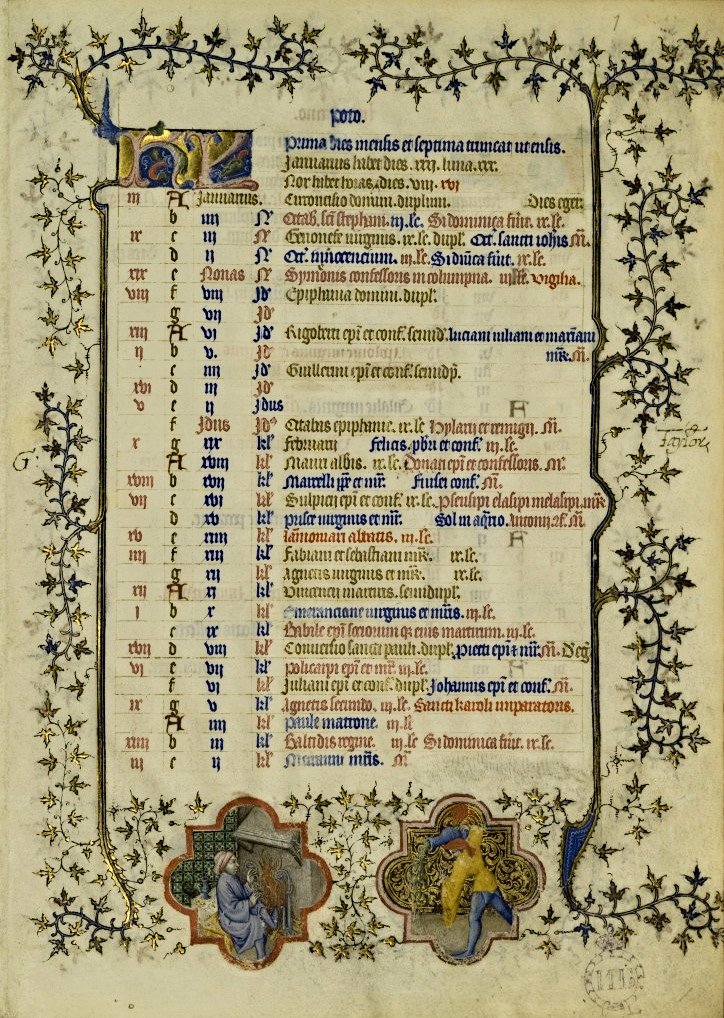 1
Poto.
KL Prima dies mensis et septima truncat ut ensis.
Januarius habet dies. xxxi. luna. xxx.
Nox habet horas. dies. viii. xvi
iii A Januarius. Circoncisio domini. duplum. Dies eger.
b iiii N Octab. sci stephani. iii. lc. Si dominica fuit. ix. lc.
xi c iii N Genovefe virginis. ix. lc. dupl. Oct. sancti iohis m.
d ii N Oct. innocencium. iii. lc. Si dnica fuit. ix. lc.
xix e Nonas N Symonis confessoris in columpna. vigilia.
viii f viii Id Epiphania domini. dupl.
g vii Id
xiii A vi Id Rigoberti epi et conf. semid. luciani iuliani et
ii b v. Id mr. m.
c iiii Id Guillermi epi et conf. semidp.
xvi d iii Id
v e ii Idus F
f Idus Id Octabas epiphanie. ix. lc. hylarii et remigii. m.
x g xix kl februarii felicis. pbri et conf. iii. lc.
A xviii kl Mauri abbis. ix. lc. Donati epi et confessoris. m.
xviii b xvii kl Marcelli pp et mr. fursei conf. m.
vii c xvi kl Sulpicii epi et conf. ix. lc. Pseusipi elasipi melasipi. mr
d xv kl Prisce virginis et mr. Sol in aqrio. m.
xv e xiiii kl lc. F
iiii f xiii kl Fabiani et sebastiani mr. ix. lc.
g xii kl Agnetis virginis et mr. ix. lc.
xii A xi kl Vincencii martiris. semidupl.
i b x kl Emeranciane virginis et mris. iii. lc.
c ix kl Babile epi sociorum qz eius martirum. iii. lc.
xvii d viii kl Conversio sancti pauli. dupl. Piecti epi et mr. m. D eg
vi e vii kl Policarpi epi et mr. iii. lc. F
f vi kl Juliani epi et conf. dupl. Johannis epi et conf. m.
ix g v kl Agnetis secundo. iii. lc. Sancti karoli imparatoris.
A iiii kl Paule matrone. iii. lc
xiiii b iii kl Baltidis regine. iii. lc Si dominica fuit. ix. lc.
iii c ii kl mris. m
G